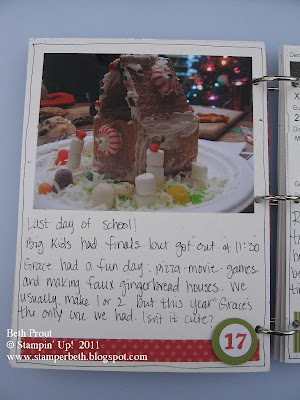 Last day of school!
Big Kids had finals but got out at 11:30
Grace had a fun day: pizza-movie-games
and making faux gingerbread houses. We
usually make 1 or 2. But this year Grace's
the only one we had. Isn't it cute?
17
Beth Prout
© Stampin' Up! 2011
www.stamperbeth.blogspot.com